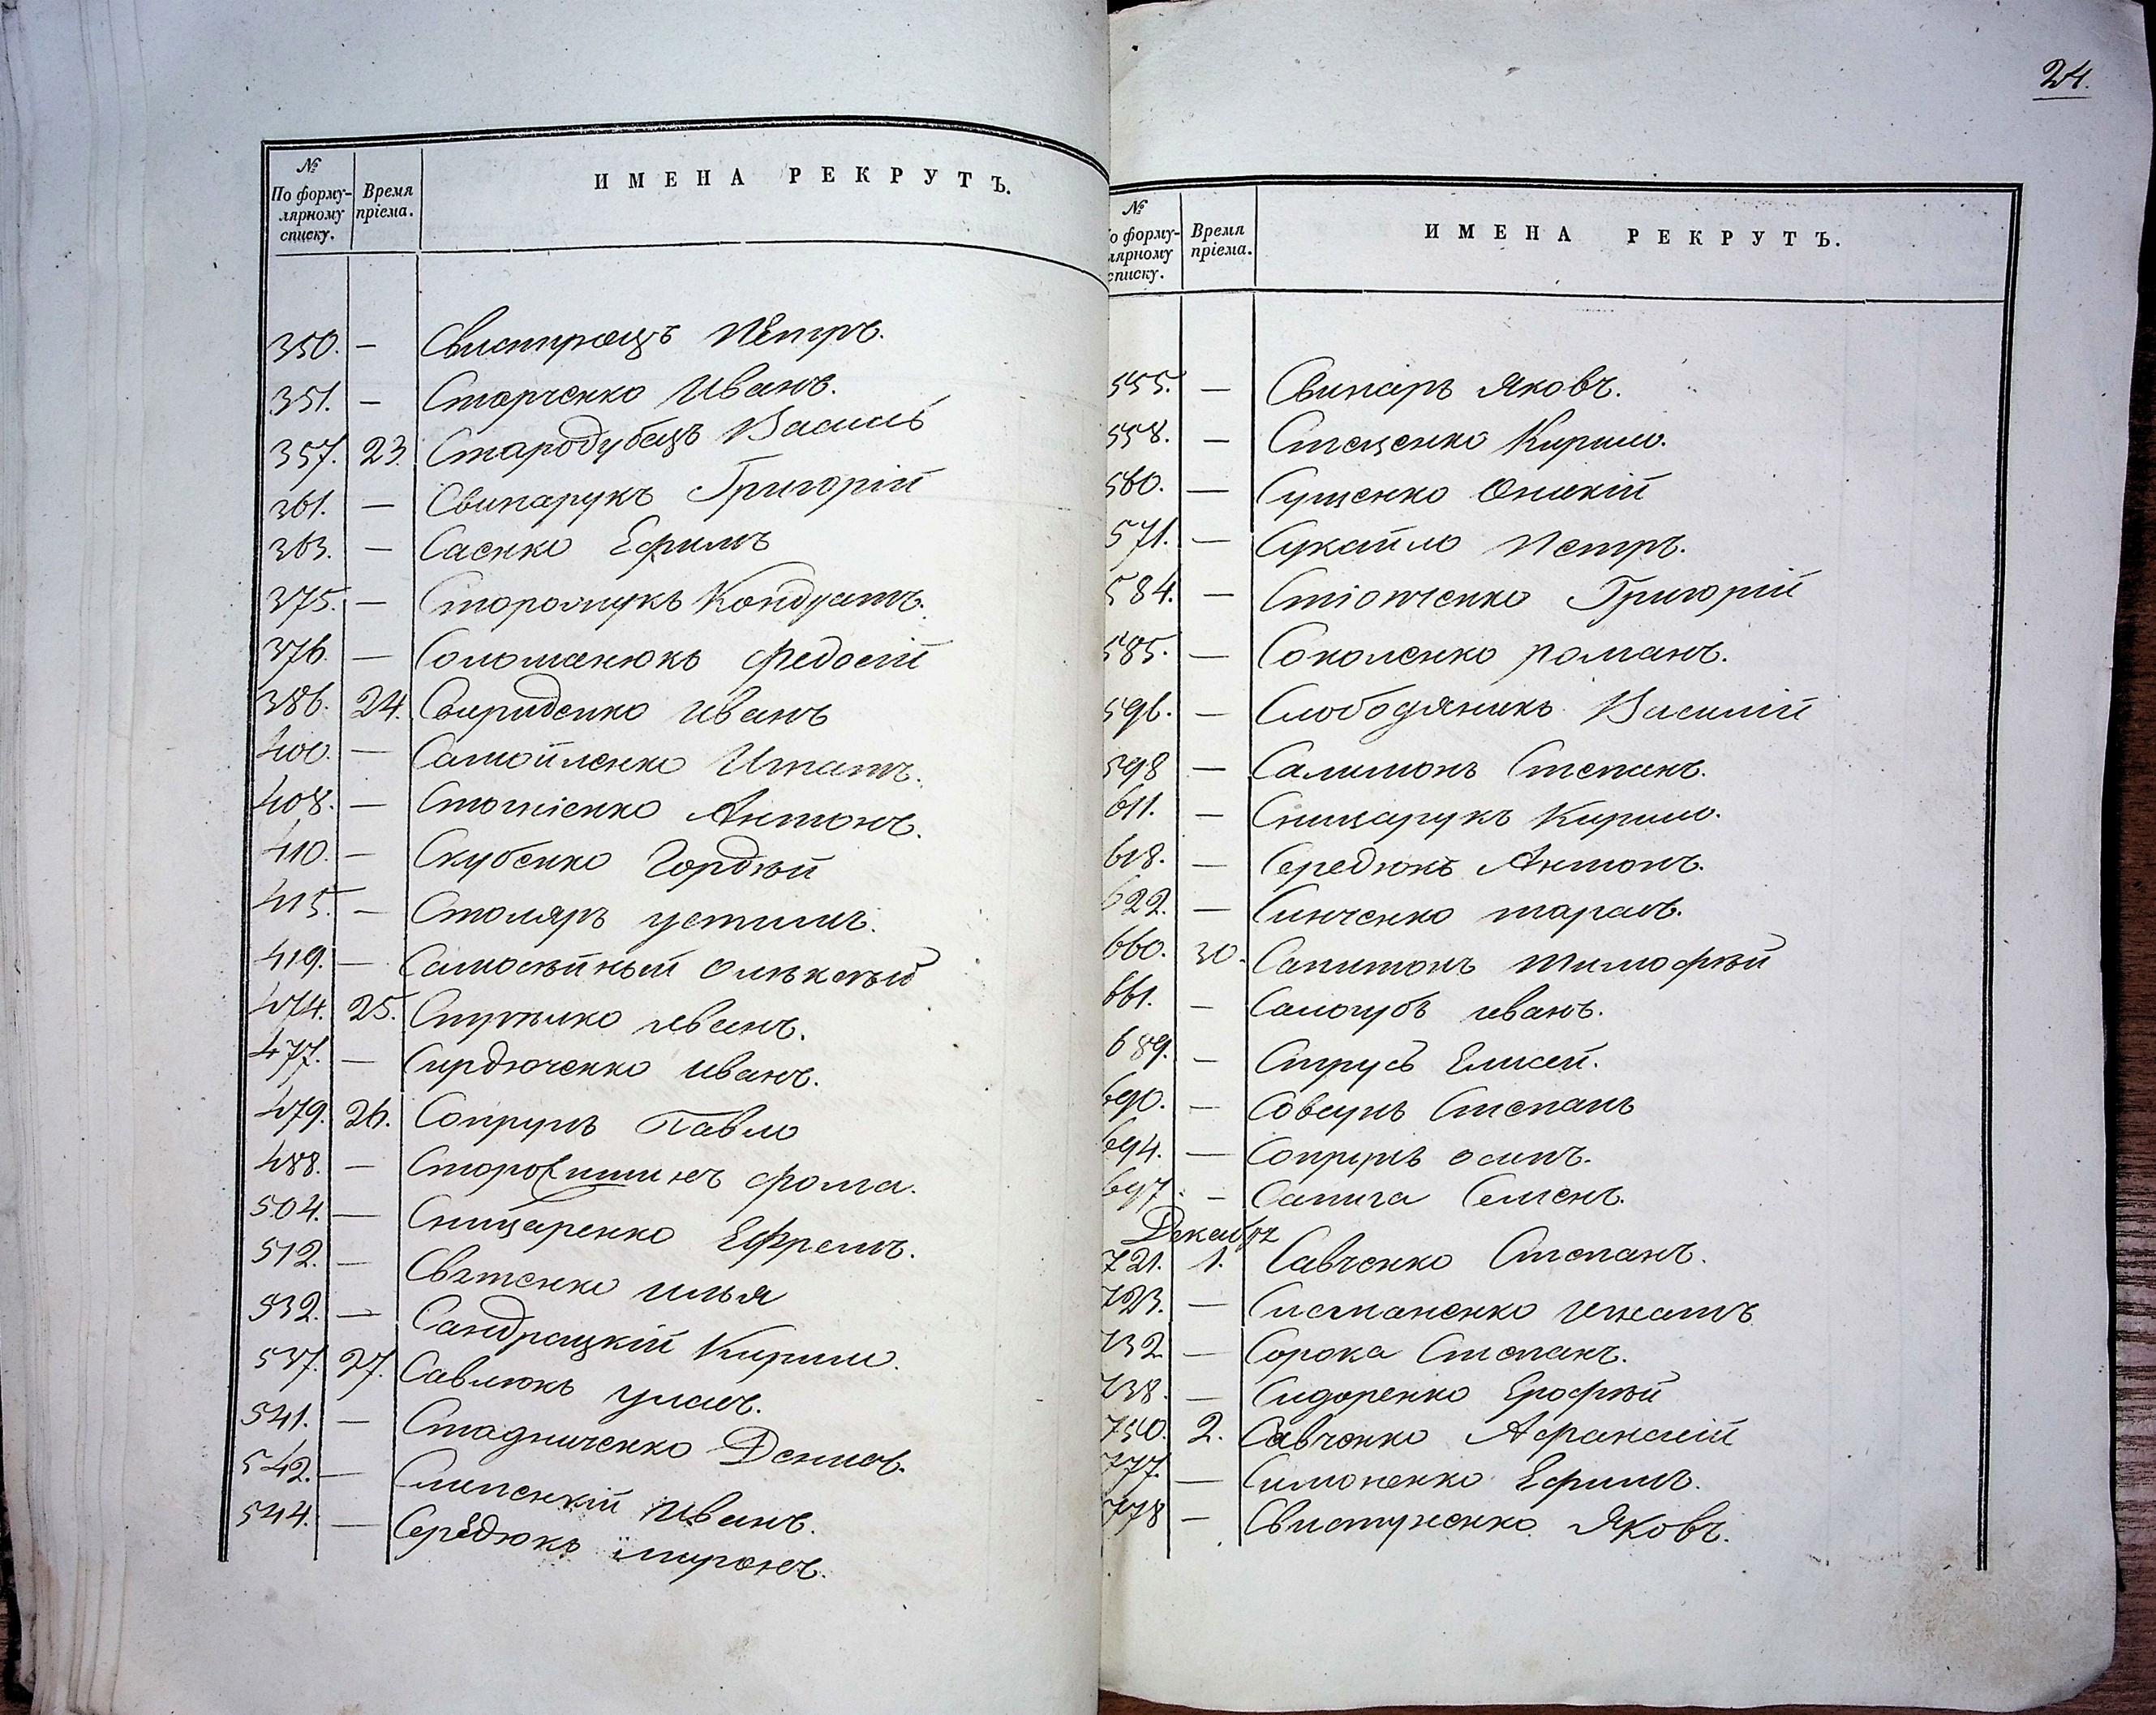 №
По форму-
лярному
списку.
Время
пріема.
ИМЕНА РЕКРУТЪ.
350. — Свистрецъ Петръ.
351. — Старченко Иванъ.
357. 23. Стародубецъ Василь
361. — Свинарукъ Григорій
363. — Саенко Ефимъ
375. — Кондратъ.
376. — Соломанюкъ Федосій
386. 24. Свириденко Иванъ
400. — Самойленко Игнатъ.
408. — Стогніенко Антонъ.
410. — Скубенко Гордѣй
415. — Столяръ Устимъ.
419. — Самосѣйный Олѣксѣй
474. 25. Иванъ.
477. — Сирдюченко Иванъ.
479. 26. Сопрунъ Павло
488. — Фома.
504. — Сницаренко Ефремъ.
512. — Святенко Илья
532. — Сандрацкій Кирило.
537. 27. Савлюкъ Уласъ.
541. — Стадниченко Денисъ.
542. — Слипенкій Иванъ.
544. — Середюкъ Миронъ.
24.
№
о форму-
лярному
списку.
Время
пріема.
ИМЕНА РЕКРУТЪ.
555. — Свинаръ Яковъ.
558. — Стеценко Кирило.
560. — Сущенко Оникій
571. — Сукайло Петръ.
584. — Григорій
585. — Соколенко Романъ.
596. — Слободяникъ Василій
598 — Салимонъ Степанъ.
611. — Сницарукъ Кирило.
618. — Середюкъ Антонъ.
622. — Синченко Тарасъ.
660. 30. Сапитонъ Тимофѣй
661. — Салогубъ Иванъ.
689. — Струсь Елисей.
690. — Совсунъ Степанъ
694. — Сопрунъ Осипъ.
697. — Сапига Семенъ.
Декабря
721. 1. Савченко Степанъ.
723. — Систаненко Игнатъ
732 — Сорока Степанъ.
738. — Сидоренко Ерофѣй
750. 2. Савченко Афанасій
777. — Симоненко Ефимъ.
778 — Свистуненко Яковъ.